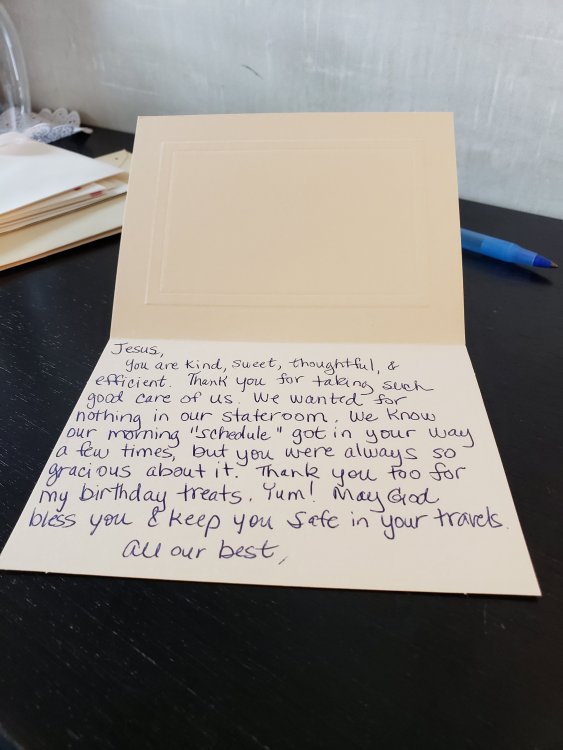 Jesus,
You are kind, sweet, thoughtful, &
efficient. Thank you for taking such
good care of us. We wanted for
nothing in our stateroom. We know
our morning "schedule" got in your way
a few times, but you were always so
gracious about it. Thank you too for
my birthday treats. Yum! May God
bless you & keep you safe in your travels.
All our best,